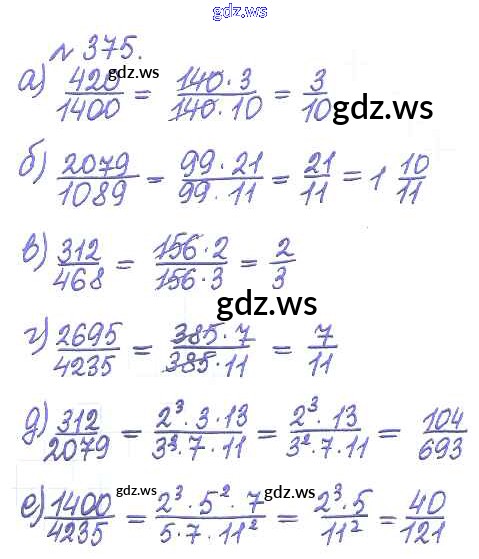 gdz.ws
№ 375.
а) 420/1400 = 140·3/140·10 = 3/10
gdz.ws
gdz.ws
б) 2079/1089 = 99·21/99·11 = 21/11 = 1 10/11
в) 312/468 = 156·2/156·3 = 2/3
gdz.ws
г) 2695/4235 = 385·7/385·11 = 7/11
д) 312/2079 = 2³·3·13/3³·7·11 = 2³·13/3²·7·11 = 104/693
gdz.ws
gdz.ws
е) 1400/4235 = 2³·5²·7/5·7·11² = 2³·5/11² = 40/121